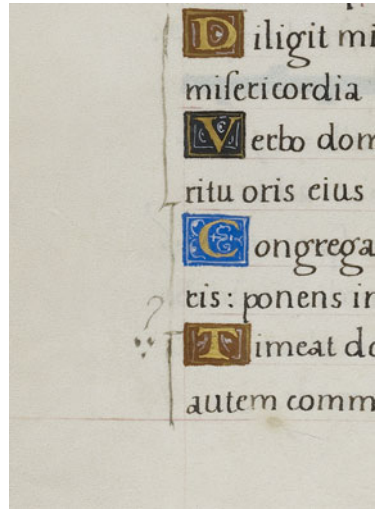 Diligit mi
miſericordia
Verbo dom
ritu oris eius
Congrega
tis: ponens in
Timeat do
autem comm